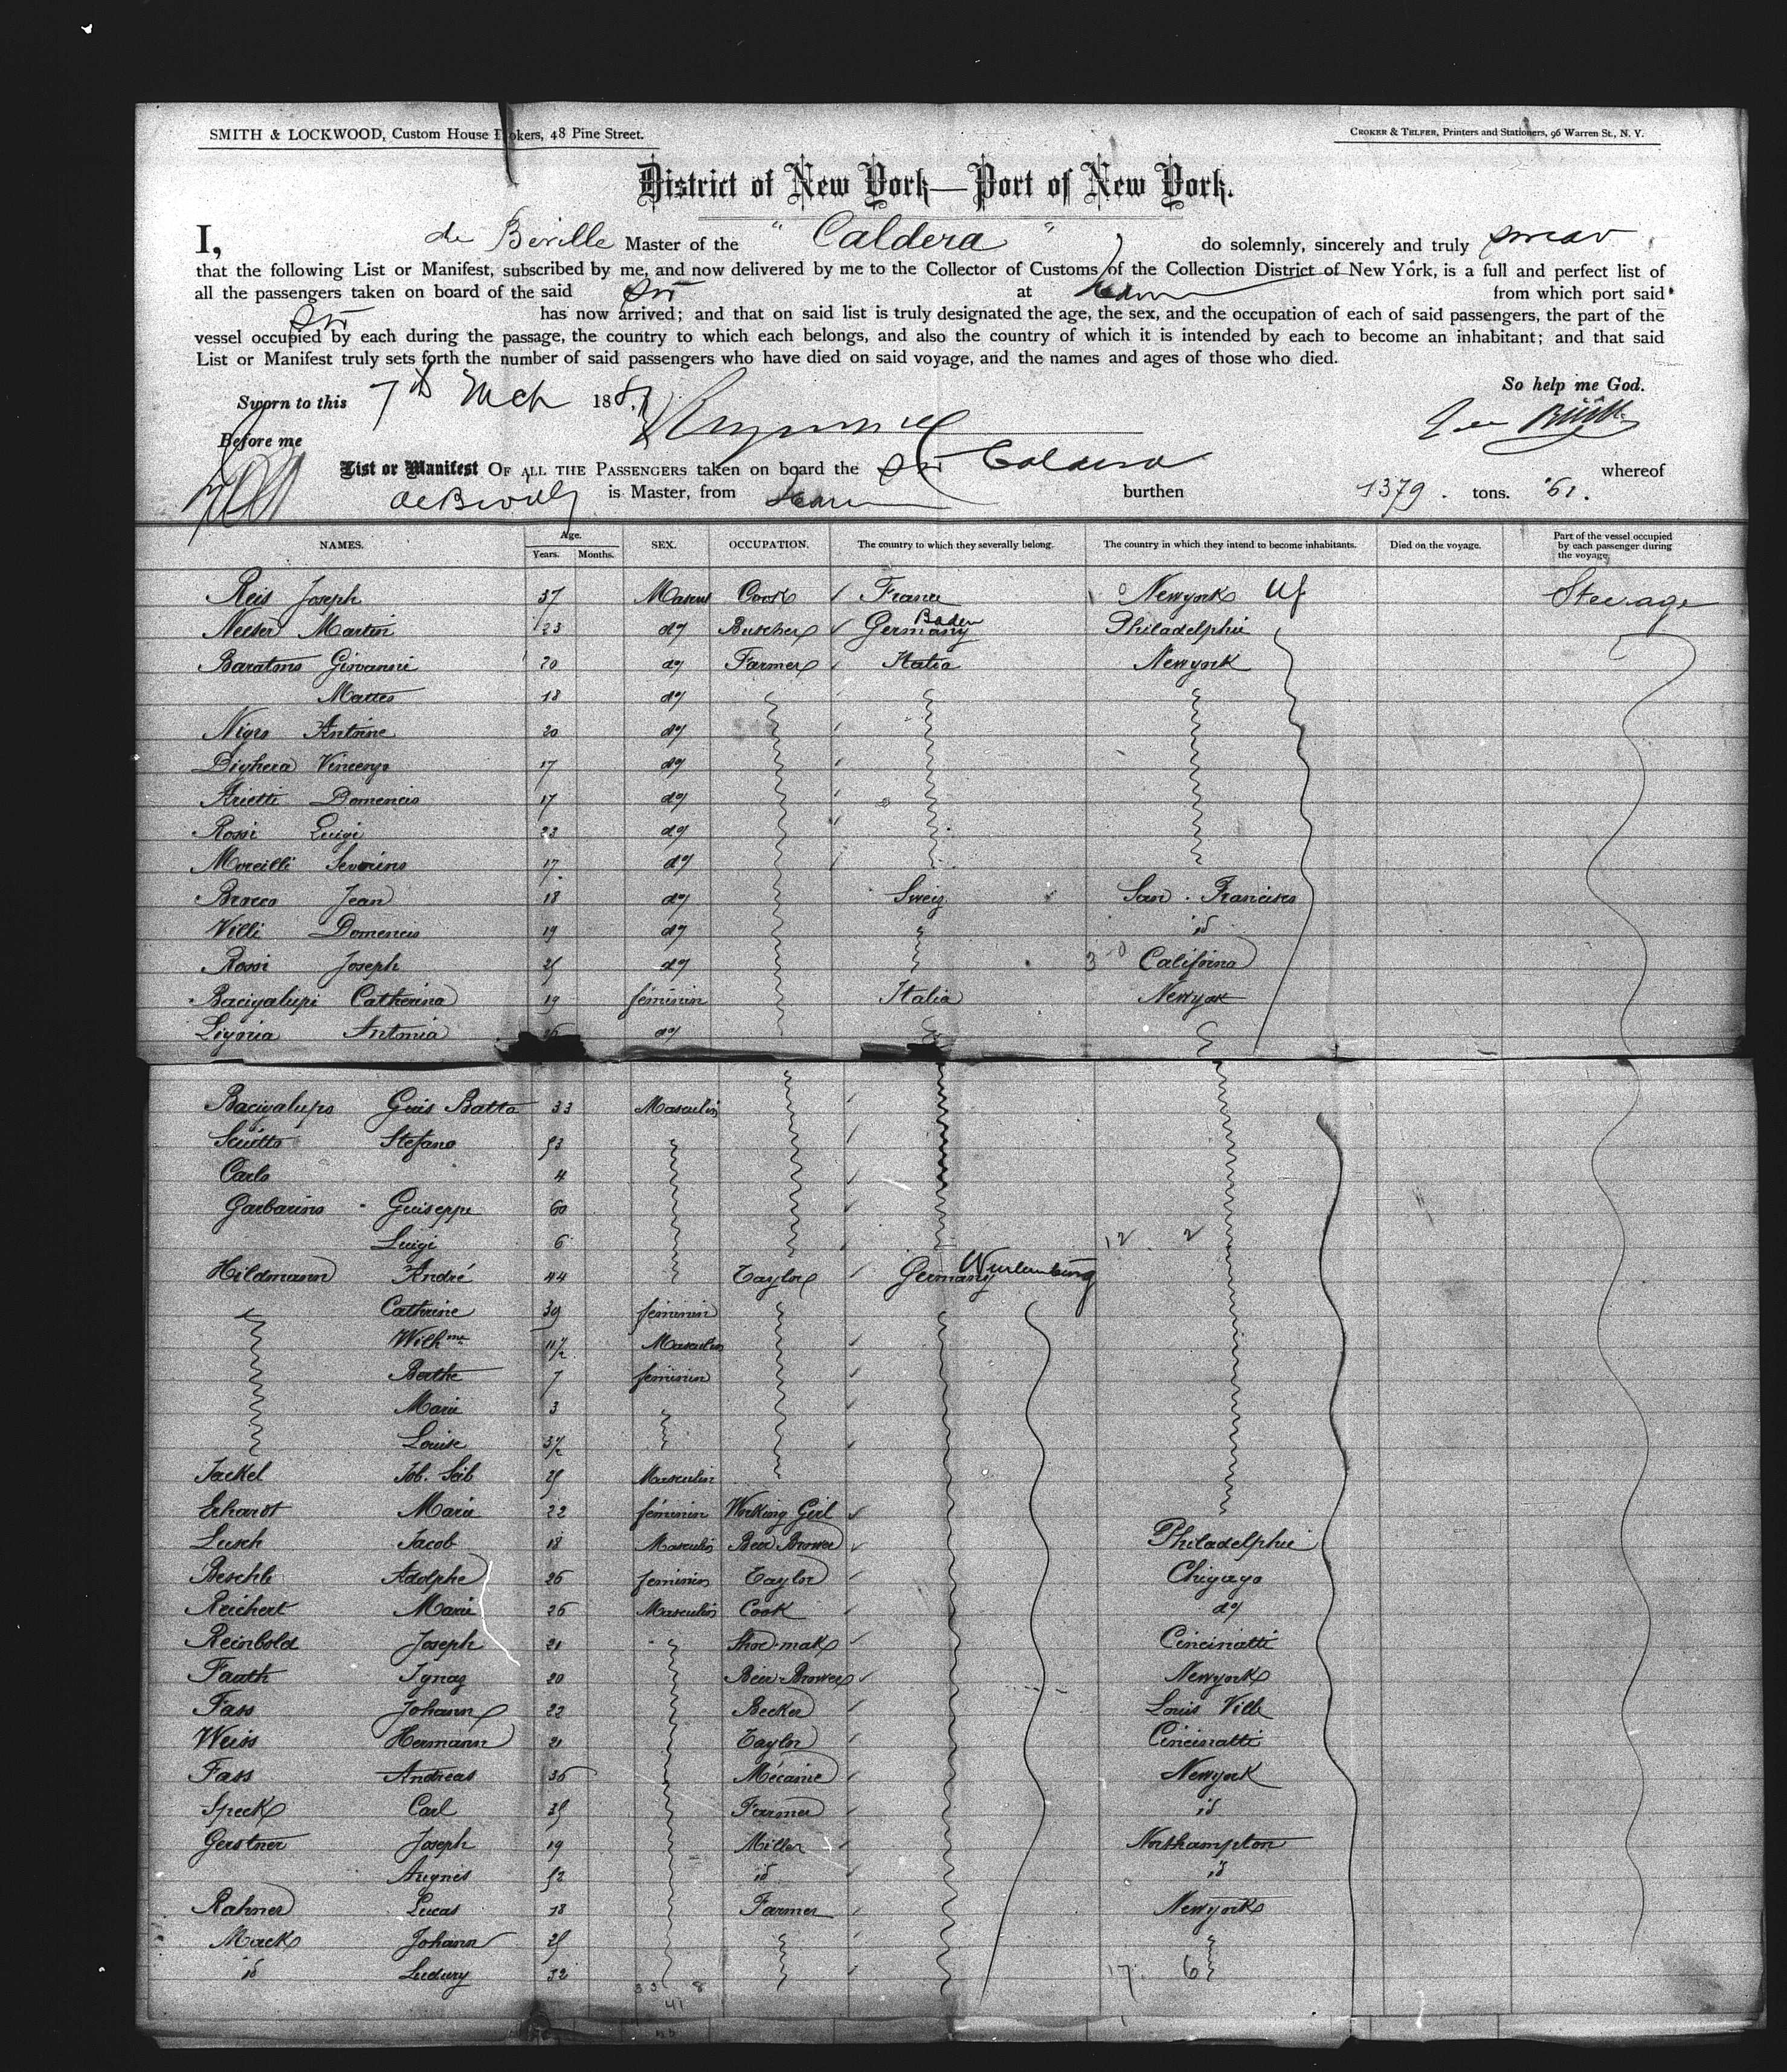 SMITH & LOCKWOOD, Custom House Brokers, 48 Pine Street.
CROKER & TELFER, Printers and Stationers, 96 Warren St., N. Y.
District of New York—Port of New York.
I, de Beville Master of the "Caldera" do solemnly, sincerely and truly swear
that the following List or Manifest, subscribed by me, and now delivered by me to the Collector of Customs of the Collection District of New York, is a full and perfect list of
all the passengers taken on board of the said Str at from which port said
Str has now arrived; and that on said list is truly designated the age, the sex, and the occupation of each of said passengers, the part of the
vessel occupied by each during the passage, the country to which each belongs, and also the country of which it is intended by each to become an inhabitant; and that said
List or Manifest truly sets forth the number of said passengers who have died on said voyage, and the names and ages of those who died.
So help me God.
Sworn to this 7th Mch 188
Before me
List or Manifest OF ALL THE PASSENGERS taken on board the Str Caldera whereof
de Beville is Master, from burthen 1379. tons. '61.
NAMES. Age. Years. Months. SEX. OCCUPATION. The country to which they severally belong. The country in which they intend to become inhabitants. Died on the voyage. Part of the vessel occupied by each passenger during the voyage.
Reis Joseph 37 Mascul Cook France Newyork Steerage
Neeser Martin 23 do Butcher Germany Baden Philadelphie
Baratono Giovanni 20 do Farmer Italia Newyork
Matteo 18 do
Nigro Antoine 20 do
Dighera Vincenzo 17 do
Arietti Domenico 17 do
Rossi Luigi 23 do
Morcilli Severino 17 do
Brocco Jean 18 do Sweiz San Francisco
Villi Domenico 19 do id
Rossi Joseph 25 do 3 California
Bacigalupi Catherina 19 féminin Italia Newyork
Ligoria Antonia 26 do
Bacigalupo Guis Batta 33 Masculin
Sciutto Stefano 53
Carlo 4
Garbarino Guiseppe 60
Luigi 6 12 2
Hildmann André 44 Taylor Germany Wurtemburg
Catherine 39 féminin
Wilhme 11½ Masculin
Berthe 7 féminin
Marie 3
Louise
Jackel Joh. Seb 25 Masculin
Erhardt Marie 22 féminin Working Girl
Lusch Jacob 18 Masculin Beer Brower Philadelphie
Beschle Adolphe 26 feminin Taylor Chigago
Reichert Marie 26 Masculin Cook do
Reinbold Joseph 21 Shoe-mak Cincinatti
Faath Ignaz 20 Beer-Brower Newyork
Fass Johann 22 Becker Louis Ville
Weiss Hermann 21 Taylor Cincinatti
Fass Andreas 36 Mécanic Newyork
Speck Carl 25 Farmer id
Gerstner Joseph 19 Miller Northampton
Augnes 52 id id
Rahner Lucas 18 Farmer Newyork
Mack Johann 25
id Ludwig 32 17 6
33 8
41